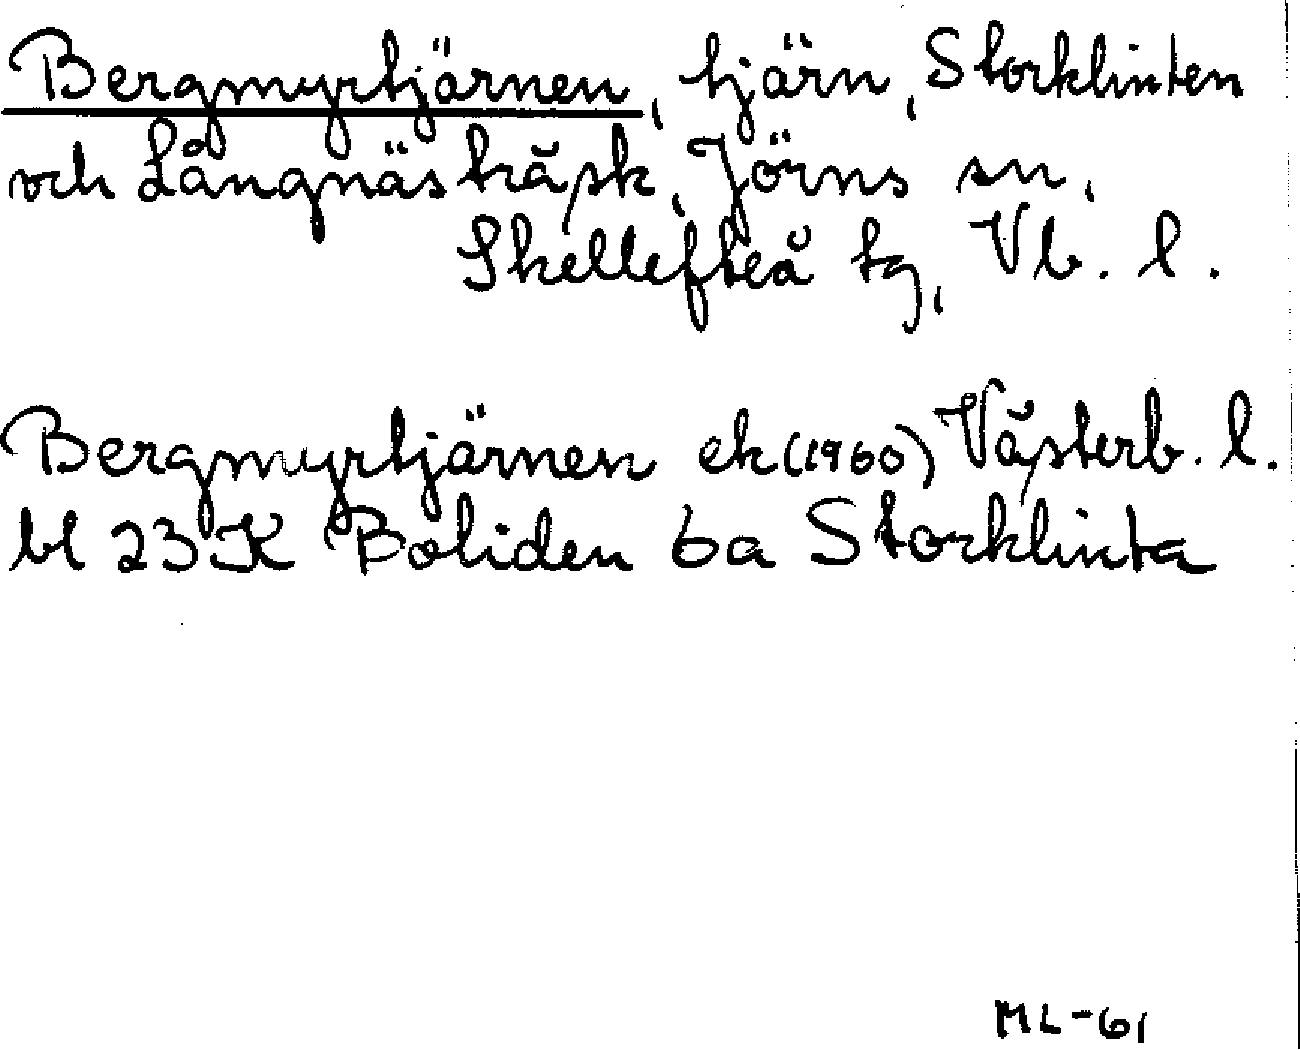 Bergmyrtjärnen, tjärn, Storklinten
och Långnästräsk, Jörns sn,
Skellefteå tg, Vb. l.
Bergmyrtjärnen ek(1960) Västerb. l.
bl 23 K Boliden 6a Storklinta
ML-61